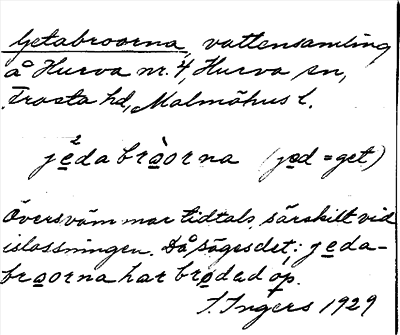 Getabroarna, vattensamling
å Hurva nr. 4, Hurva sn,
Frosta hd, Malmöhus l.
jedabråorna (jed = get)
Översvämmar tidtals, särskilt vid
islossningen. Då säges det: jeda-
bråorna har brodad op.
I. Ingers 1929